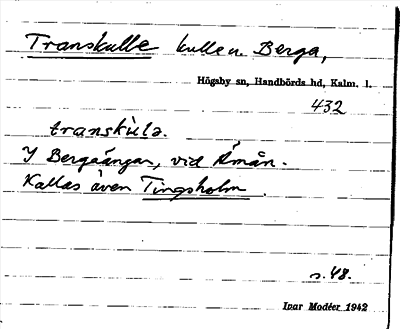 Transkulle kulle n. Berga,
Högsby sn, Handbörds hd, Kalm. l.
432
transkùlə.
I Bergaängar, vid Emån.
Kallas även Tingsholm.
s. 48.
Ivar Modéer 1942